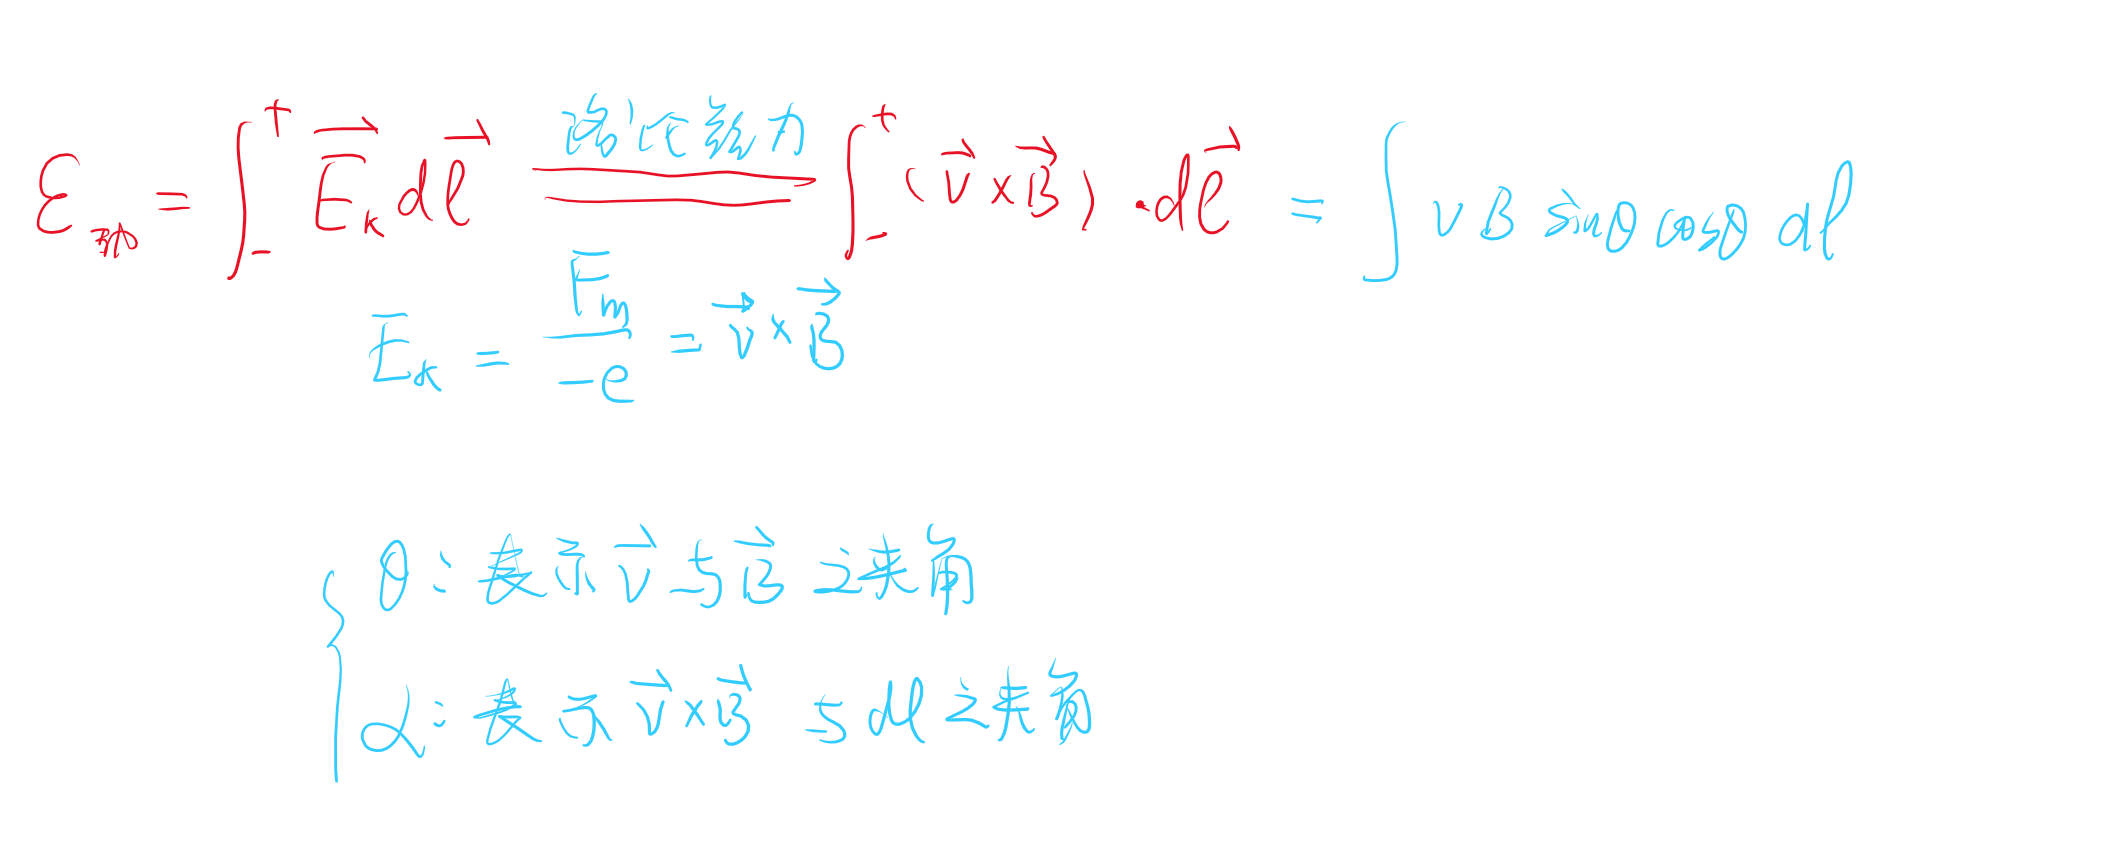 ε动 = ∫₋⁺ E⃗ₖ dℓ⃗ 洛伦兹力 ∫₋⁺ (v⃗×B⃗)·dℓ⃗ = ∫ vB sinθ cosθ dℓ
E̅ₖ = F̅m / -e = v⃗×B⃗
θ: 表示 v⃗ 与 B⃗ 之夹角
α: 表示 v⃗×B⃗ 与 dℓ 之夹角